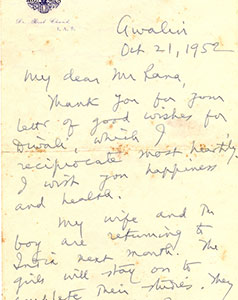 Gwalior
Oct 21, 1952
My dear Mr Rana,
Thank you for your
letter of good wishes for
Diwali, which I
reciprocate most heartily.
I wish you happiness
and health.
My wife and the
boy are returning to
India next month. The
girls will stay on to
complete their studies. They